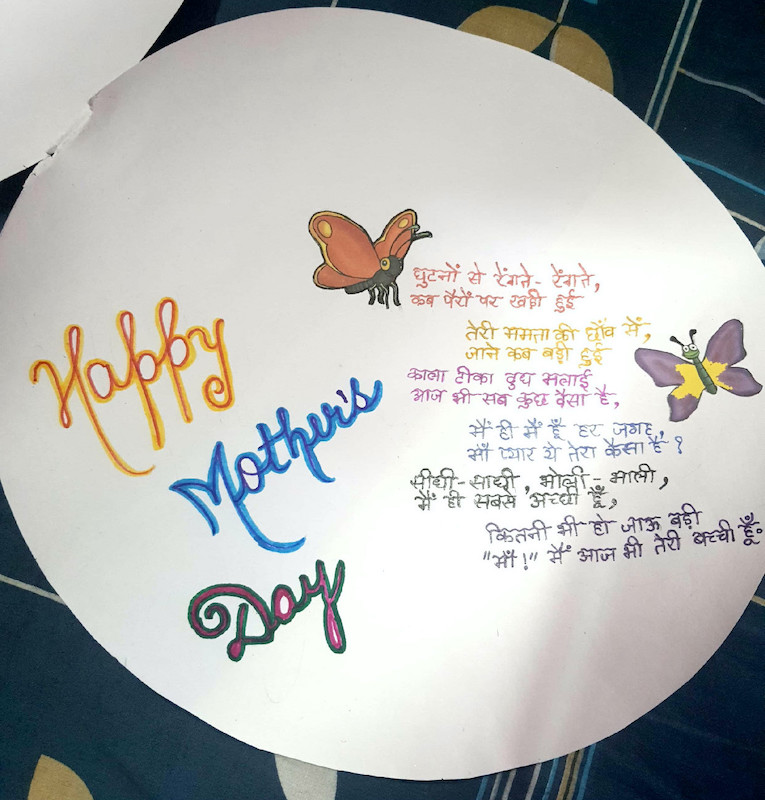 Happy
Mother's
Day
घुटनों से रेंगते - रेंगते,
कब पैरों पर खड़ी हुई
तेरी ममता की छाँव में,
जाने कब बड़ी हुई
काला टीका दुध मलाई
आज भी सब कुछ वैसा है,
मैं ही मैं हूँ हर जगह,
माँ प्यार ये तेरा कैसा है ?
सीधी-साधी, भोली-भाली,
मैं ही सबसे अच्छी हूँ,
कितनी भी हो जाऊ बड़ी
"माँ !" मैं आज भी तेरी बच्ची हूँ.